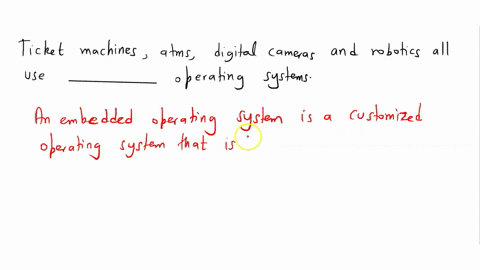 Ticket machines, atms, digital cameras and robotics all
use __________ operating systems.
An embedded operating system is a customized
operating system that is